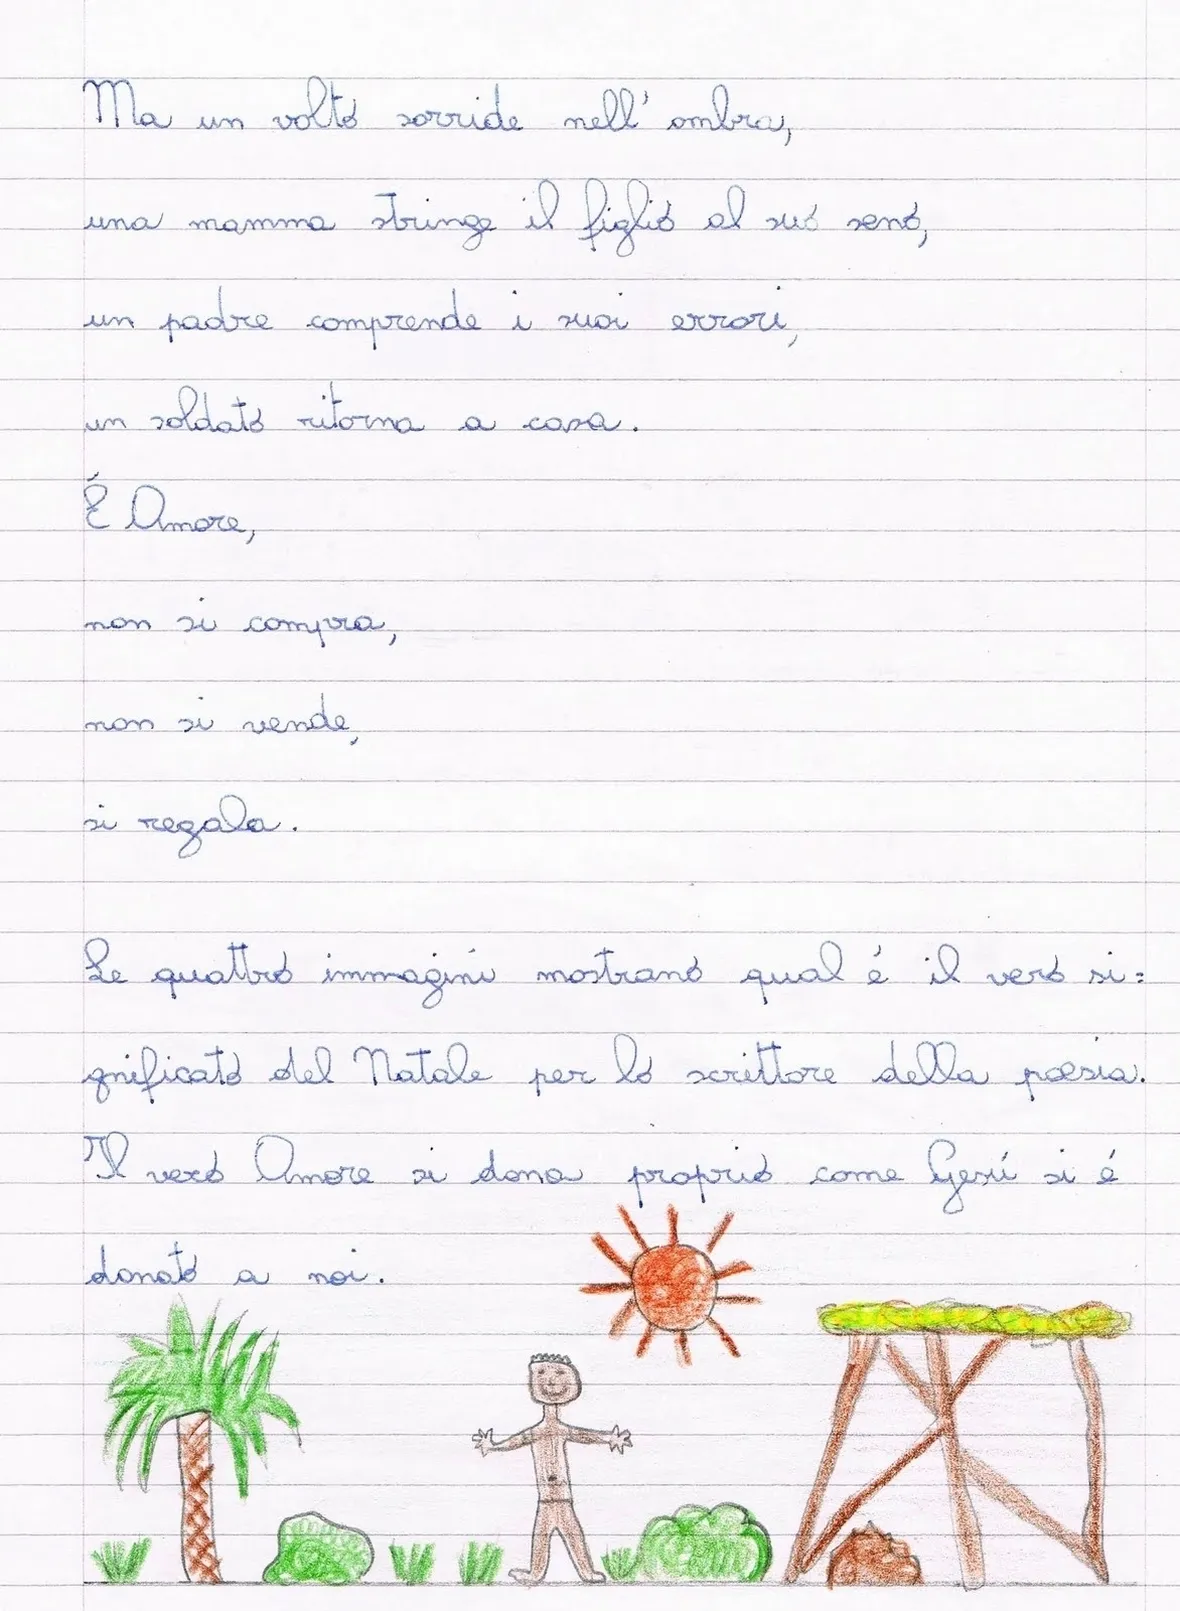 Ma un volto sorride nell'ombra,
una mamma stringe il figlio al suo seno,
un padre comprende i suoi errori,
un soldato ritorna a casa.
É Amore,
non si compra,
non si vende,
si regala.
Le quattro immagini mostrano qual é il vero si=
gnificato del Natale per lo scrittore della poesia.
Il vero Amore si dona proprio come Gesú si é
donato a noi.